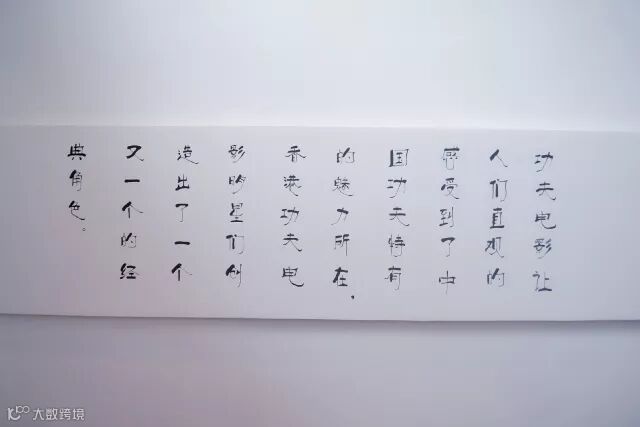 功夫电影让
人们直观的
感受到了中
国功夫特有
的魅力所在，
香港功夫电
影明星们创
造出了一个
又一个的经
典角色。
大数跨境